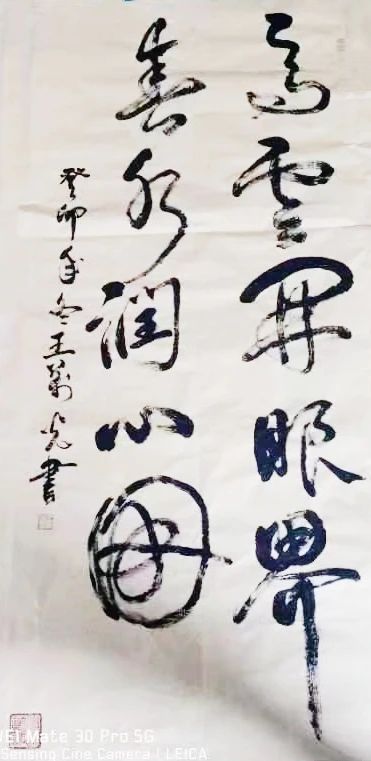 高雲開眼界
春水潤心田
癸卯年冬王萬光書
EI Mate 30 Pro 5G
Sensing Cine Camera | LEICA